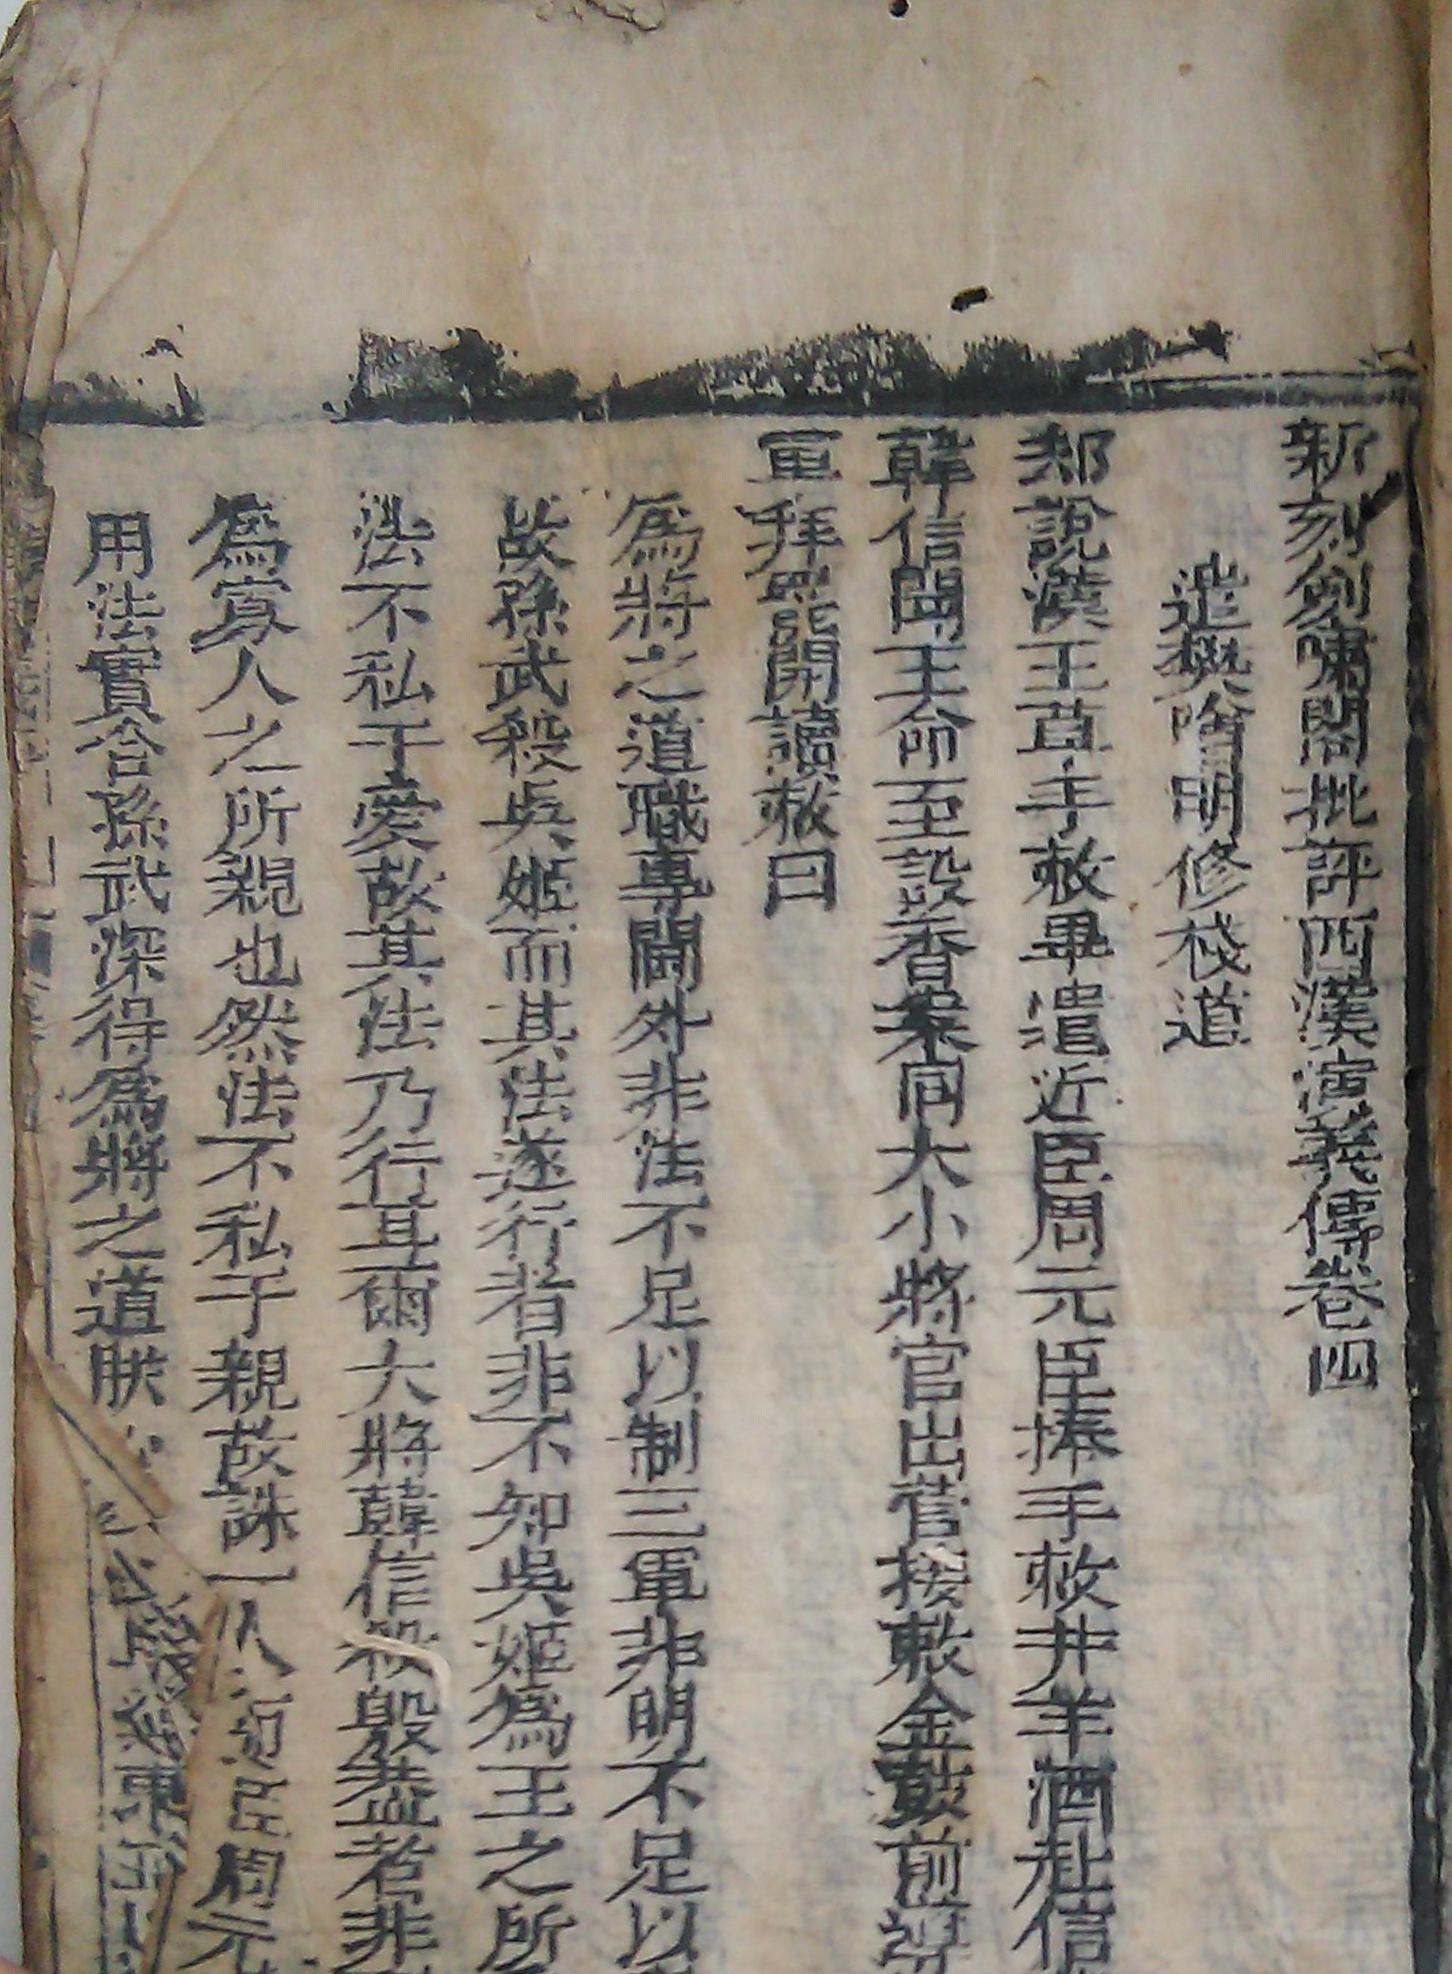 新刻劍嘯閣批評西漢演義傳卷四
遣樊噲明修棧道
却說漢王草手敕畢遣近臣周元臣捧手敕并羊酒赴信
韓信聞王命至設香案同大小將官出營接敕金鼓前導
軍拜畢開讀敕曰
為將之道職專閫外非法不足以制三軍非明不足以
故孫武殺吳姬而其法遂行者非不知吳姬為王之所
法不私于愛故其法乃行耳爾大將韓信殺殷蓋者非
為寡人之所親也然法不私于親故誅一人 臣周元
用法實合孫武深得為將之道朕